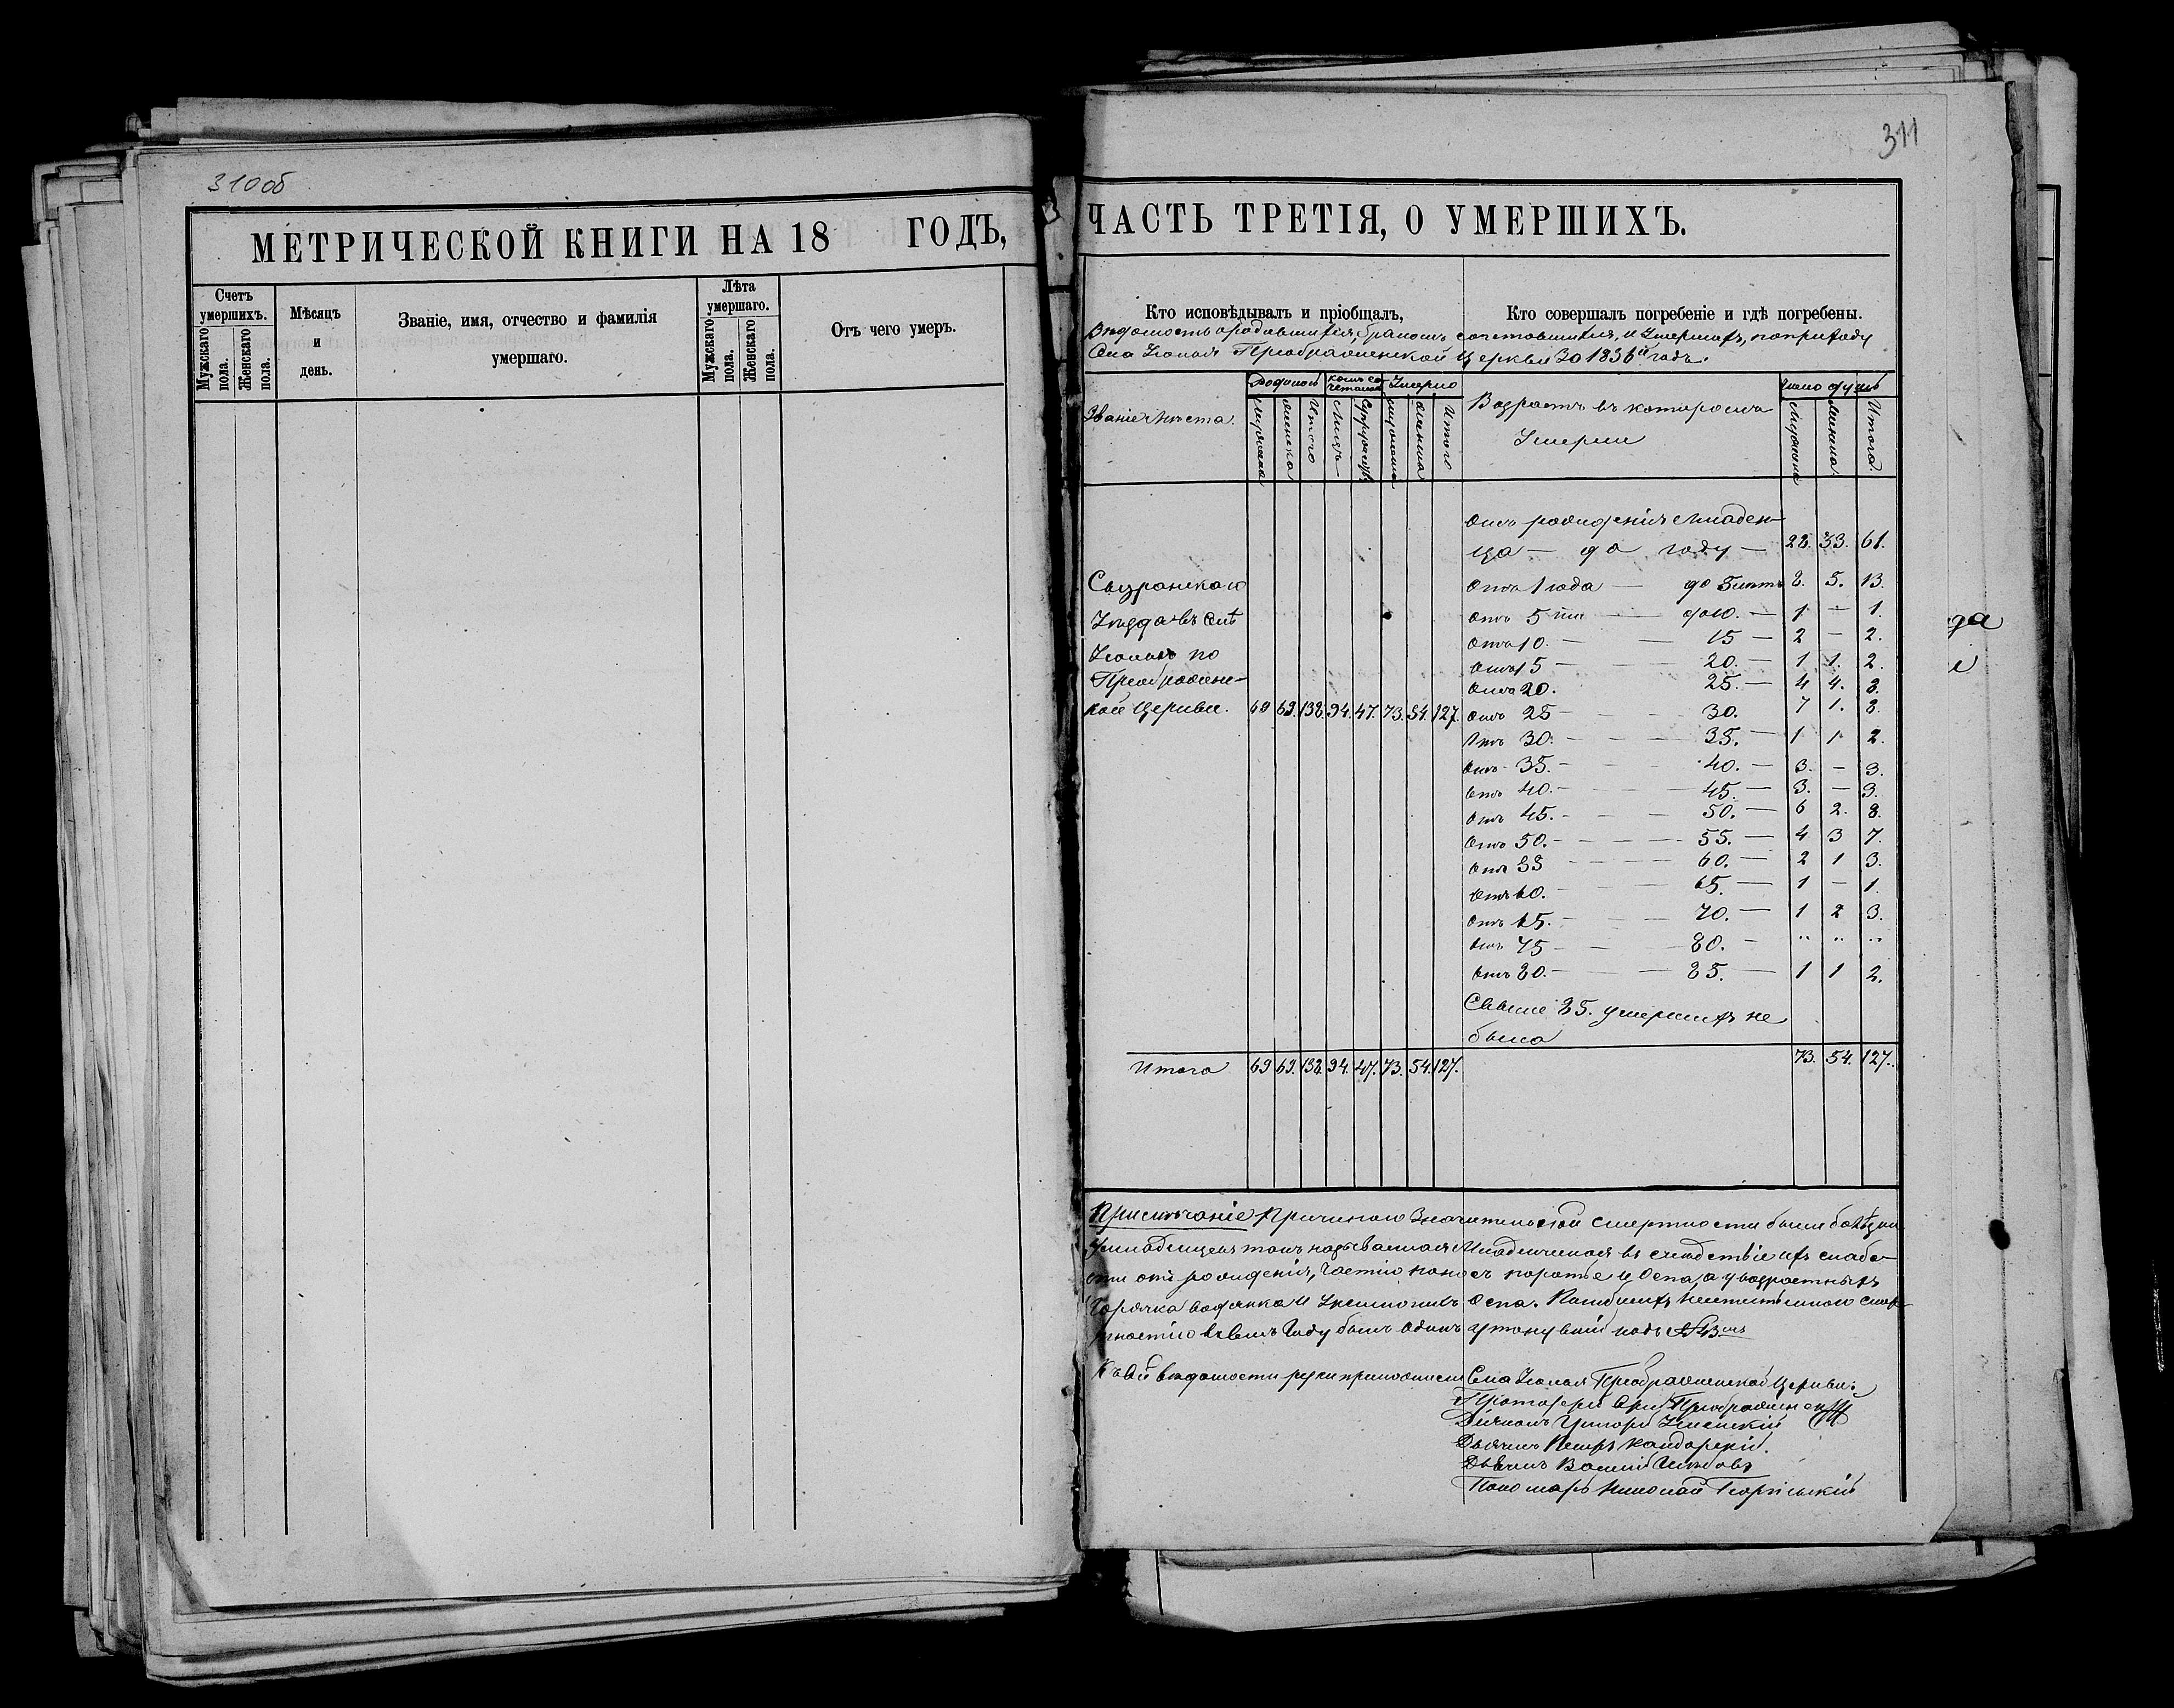 310об
МЕТРИЧЕСКОЙ КНИГИ НА 18 ГОДЪ,
Счетъ умершихъ.
Мужскаго пола.
Женскаго пола.
Мѣсяцъ и день.
Званіе, имя, отчество и фамилія умершаго.
Лѣта умершаго.
Мужскаго пола.
Женскаго пола.
Отъ чего умеръ.
311
ЧАСТЬ ТРЕТІЯ, О УМЕРШИХЪ.
Кто исповѣдывалъ и пріобщалъ,
Кто совершалъ погребеніе и гдѣ погребены.
Вѣдомость о родившихся, бракомъ сочетавшихся, и Умершихъ, по приходу
Села Усолья Преображенской Церкви За 1836й годъ.
Званіе Мѣста.
Мужеска
Женска
Итого
Лицъ
Супружествъ
Умерло
Итого
Возрастъ въ которомъ
Умерли
Число душъ
Итого.
отъ рожденія младен-
ца — до году — 28. 33. 61.
Сызранскаго
Отъ 1 года — до 5 лѣтъ 8. 5. 13.
Уѣзда въ Селѣ
отъ 5ти — до 10. — 1 — 1.
Усольѣ по
Отъ 10. — 15 — 2 — 2.
Отъ 15 — 20. — 1 1. 2.
Преображенс-
Отъ 20. 25. — 4 4. 8.
кой Церкви. 69 69. 138. 94. 47. 73. 54. 127.
Отъ 25 — 30. 7 1. 8.
Отъ 30. — 35. — 1 1 2.
Отъ 35. — 40. — 3. — 3.
Отъ 40. — 45. — 3. — 3.
Отъ 45. — 50. — 6 2. 8.
Отъ 50. — 55. — 4 3 7.
Отъ 55 — 60. — 2 1 3.
Отъ 60. — 65. — 1 — 1.
Отъ 65. — 70. — 1 2 3.
Отъ 75 — 80. — " " "
Отъ 80. — 85. — 1 1 2.
Свыше 85. умершихъ не
было
Итого 69 69. 138. 94. 47. 73. 54. 127. 73. 54. 127.
Примѣчаніе Причиною Значительной смертности были болѣзни
Умладенцевъ такъ называемая Младенческая въ слѣдствіе ихъ слабо-
сти отъ рожденія, частію поносъ и Оспа, а у возрастныхъ
Горячка водянка и Оспа.
въ семъ Году былъ одинъ утонувшій подъ №
Къ сей вѣдомости руки приложили Села Усолья Преображенской Церкви:
Діаконъ Григорій
Дьячекъ Петръ Кандарскій.
Дьячекъ Василій
Пономарь Николай Георгіевскій